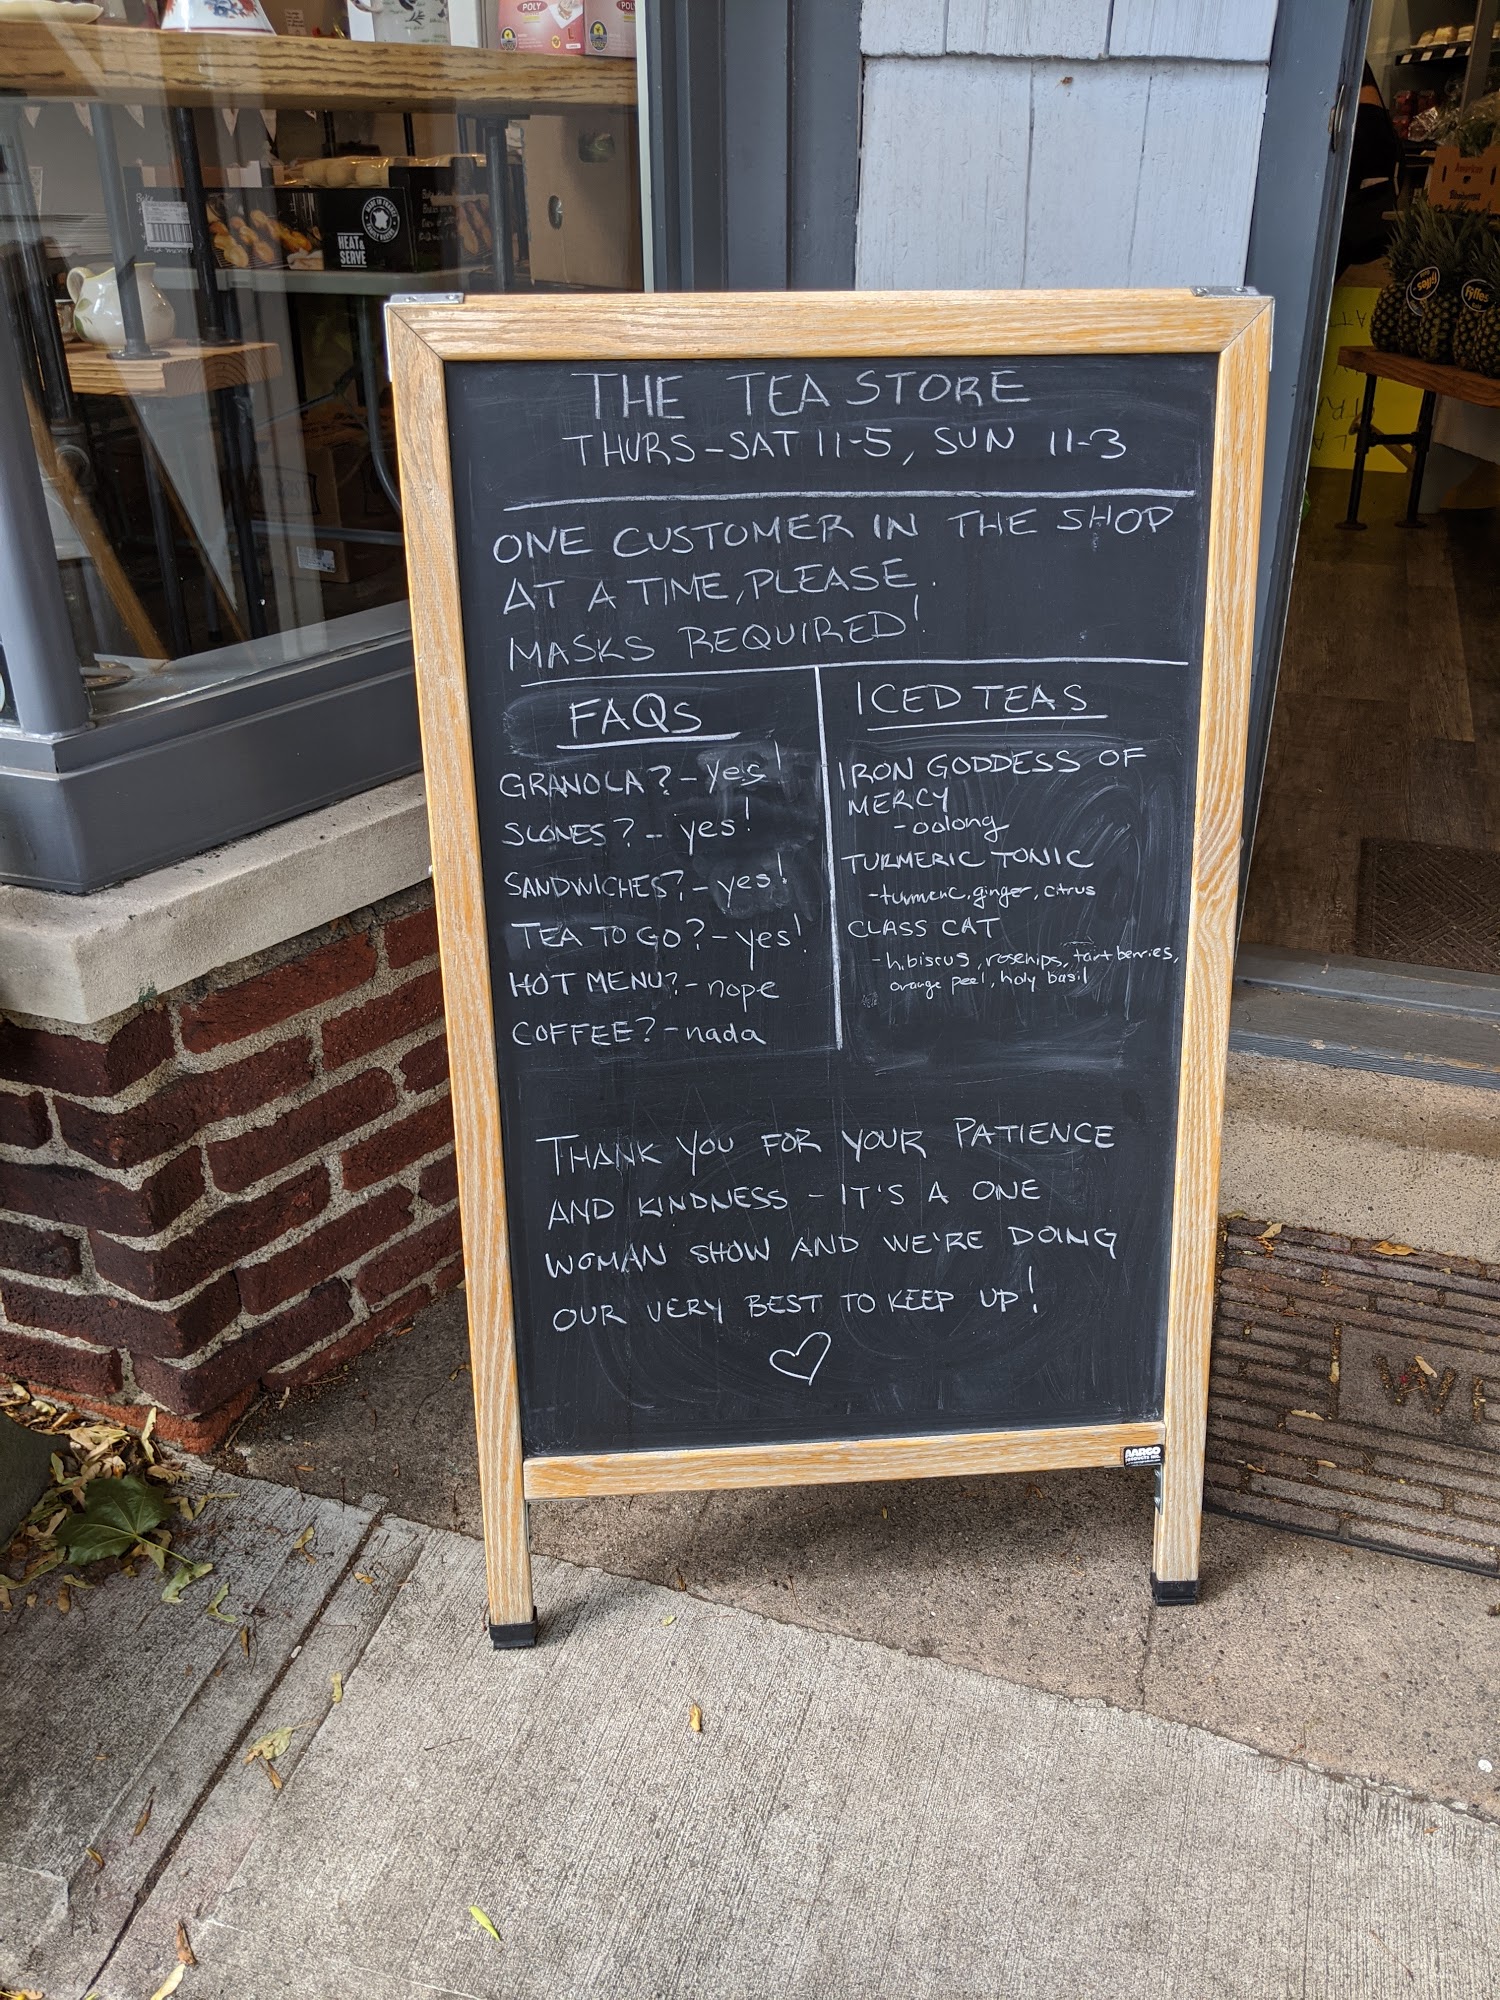 POLY
POLY
HEAT &
SERVE
MADE IN FRANCE
American
fyffes
fyffes
THE TEA STORE
THURS-SAT 11-5, SUN 11-3
ONE CUSTOMER IN THE SHOP
AT A TIME, PLEASE.
MASKS REQUIRED!
FAQs
GRANOLA? - yes!
SCONES? - yes!
SANDWICHES? - yes!
TEA TO GO? - yes!
HOT MENU? - nope
COFFEE? - nada
ICED TEAS
IRON GODDESS OF
MERCY
- oolong
TURMERIC TONIC
- turmeric, ginger, citrus
CLASS CAT
- hibiscus, rosehips, tart berries,
orange peel, holy basil
THANK YOU FOR YOUR PATIENCE
AND KINDNESS - IT'S A ONE
WOMAN SHOW AND WE'RE DOING
OUR VERY BEST TO KEEP UP!
AARCO
PRODUCTS INC.
WE